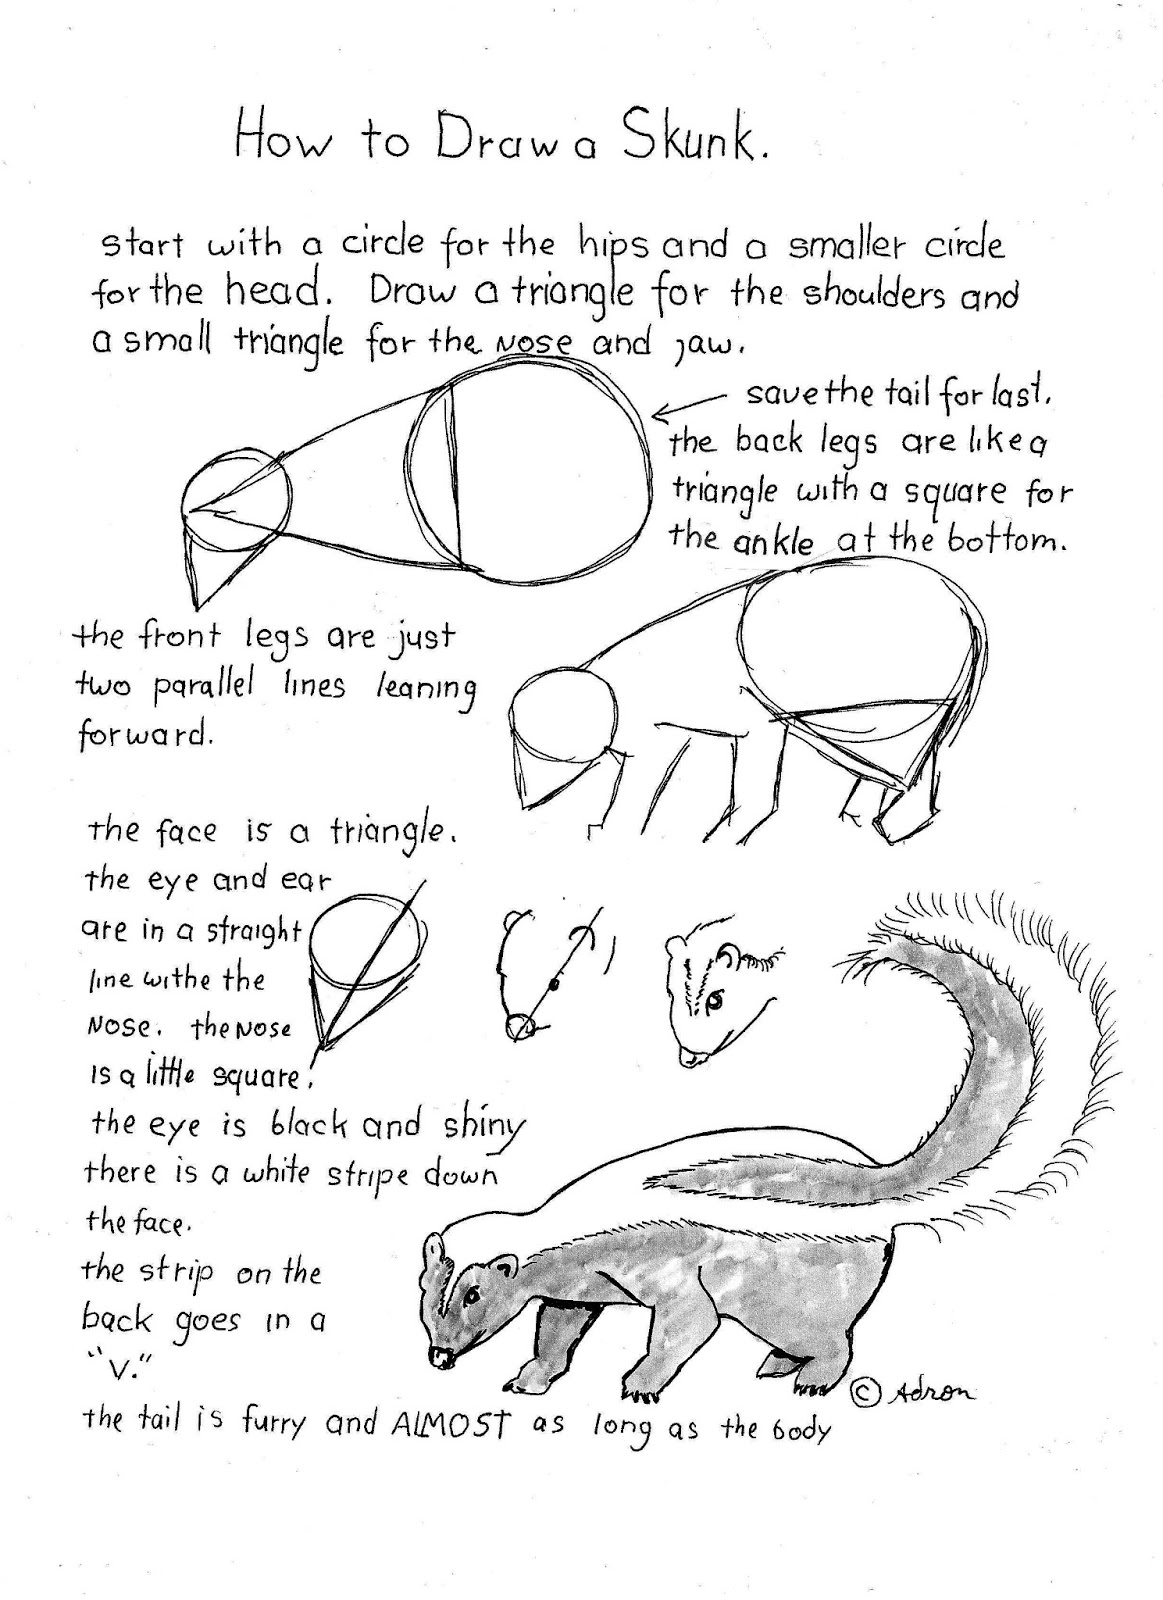 How to Draw a Skunk.
start with a circle for the hips and a smaller circle
for the head. Draw a triangle for the shoulders and
a small triangle for the nose and jaw.
save the tail for last.
the back legs are like a
triangle with a square for
the ankle at the bottom.
the front legs are just
two parallel lines leaning
forward.
the face is a triangle.
the eye and ear
are in a straight
line withe the
nose. the nose
is a little square.
the eye is black and shiny
there is a white stripe down
the face.
the strip on the
back goes in a
"V."
© Adron
the tail is furry and ALMOST as long as the body